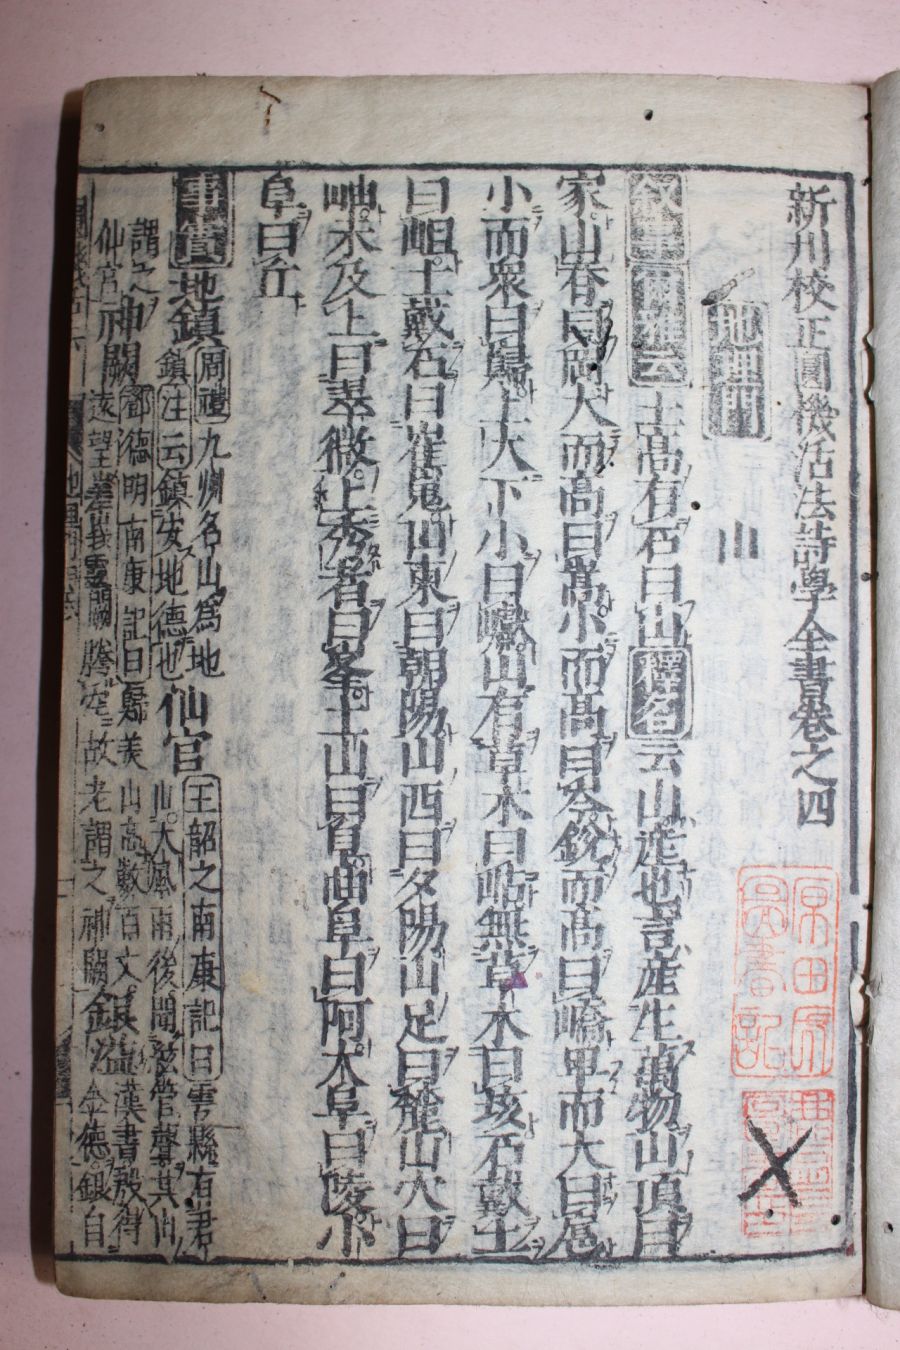 新刊校正圓機活法詩學全書卷之四
地理門
山
敘事爾雅云土高有石曰山釋名云山產也言產生萬物山頂曰
冢山脊曰岡大而高曰嵩小而高曰岑銳而高曰嶠卑而大曰扈
小而衆曰巋上大下小曰巘山有草木曰岵無草木曰垓石戴土
曰岨土戴石曰崔嵬山東曰朝陽山西曰夕陽山足曰麓山穴曰
岫未及上曰翠微上秀者曰峯土山曰阜曲阜曰阿大阜曰陵小
阜曰丘
事實地鎮周禮九州名山爲地
鎮注云鎮安地德也仙官王韶之南康記曰雩縣有君
山大風雨後聞弦管聲其山
謂之仙宮神闕鄧德明南康記曰歸美山高數百丈
遠望嵳峩靈闕騰空故老謂之神闕銀溢漢書殷得
金德銀自